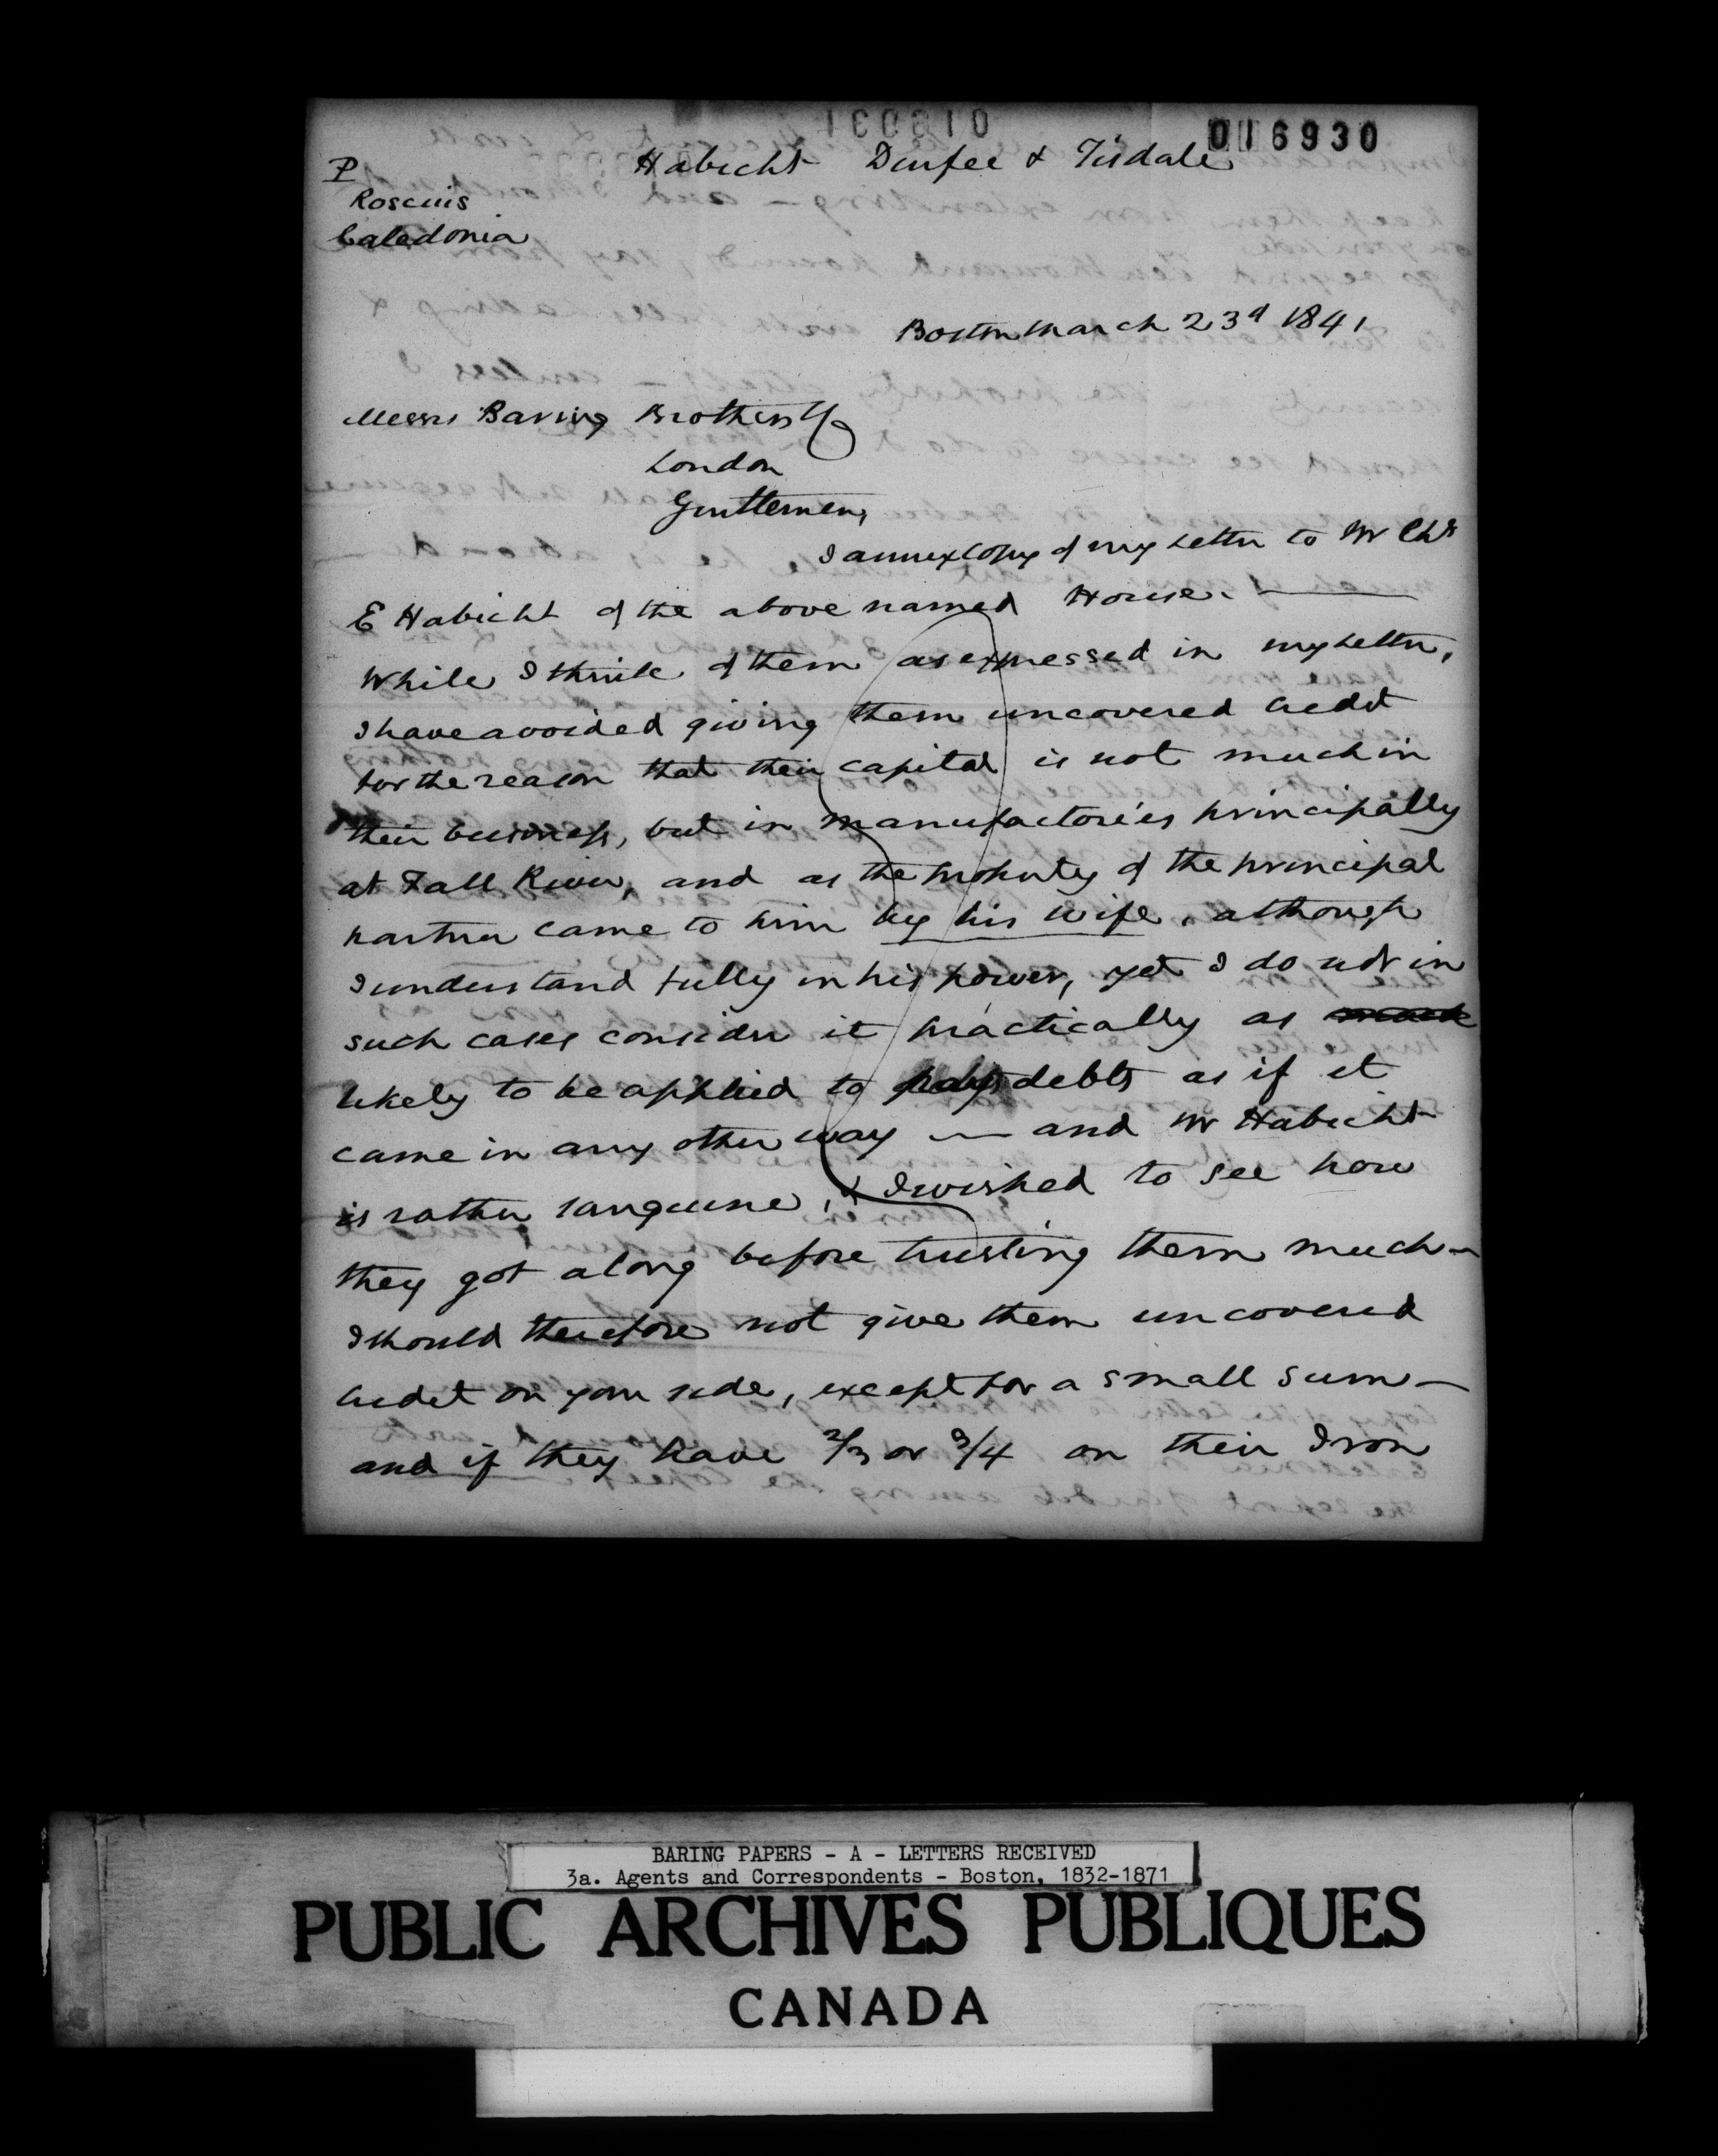 016930
Habicht Durfee & Tisdale
P
Roscius
Caledonia
Boston March 23d 1841
Messrs Baring Brothers & Co
London
Gentlemen,
I annex copy of my letter to Mr Chs
E Habicht of the above named House. —
While I think of them as expressed in my letter,
I have avoided giving them uncovered credit
for the reason that their capital is not much in
their business, but in manufactories principally
at Fall River, and as the property of the principal
partner came to him by his wife, although
I understand fully in his power, yet I do not in
such cases consider it practically as much
likely to be applied to pay debts as if it
came in any other way — and Mr Habicht
is rather sanguine, & I wished to see how
they got along before trusting them much —
I should therefore not give them uncovered
credit on your side, except for a small sum —
and if they have 2/3 or 3/4 on their Iron
BARING PAPERS - A - LETTERS RECEIVED
3a. Agents and Correspondents - Boston, 1832-1871
PUBLIC ARCHIVES PUBLIQUES
CANADA